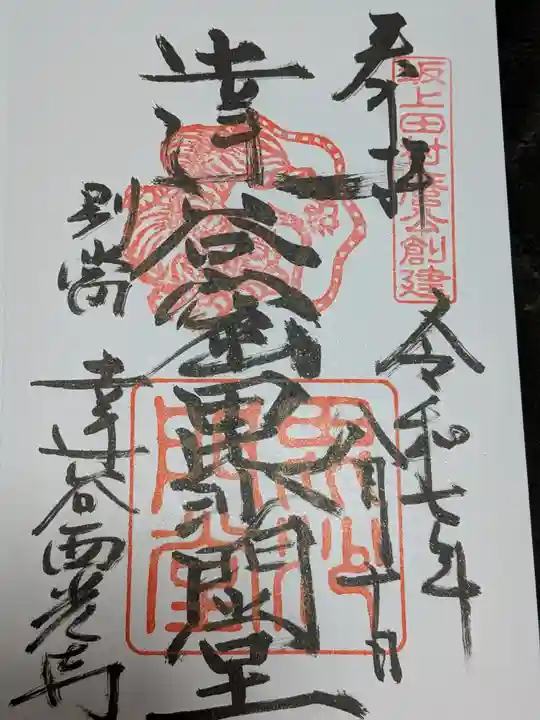 坂上田村麿公創建
奉拝
令和七年
八月十日
達谷窟毘沙門堂
別當
達谷西光寺